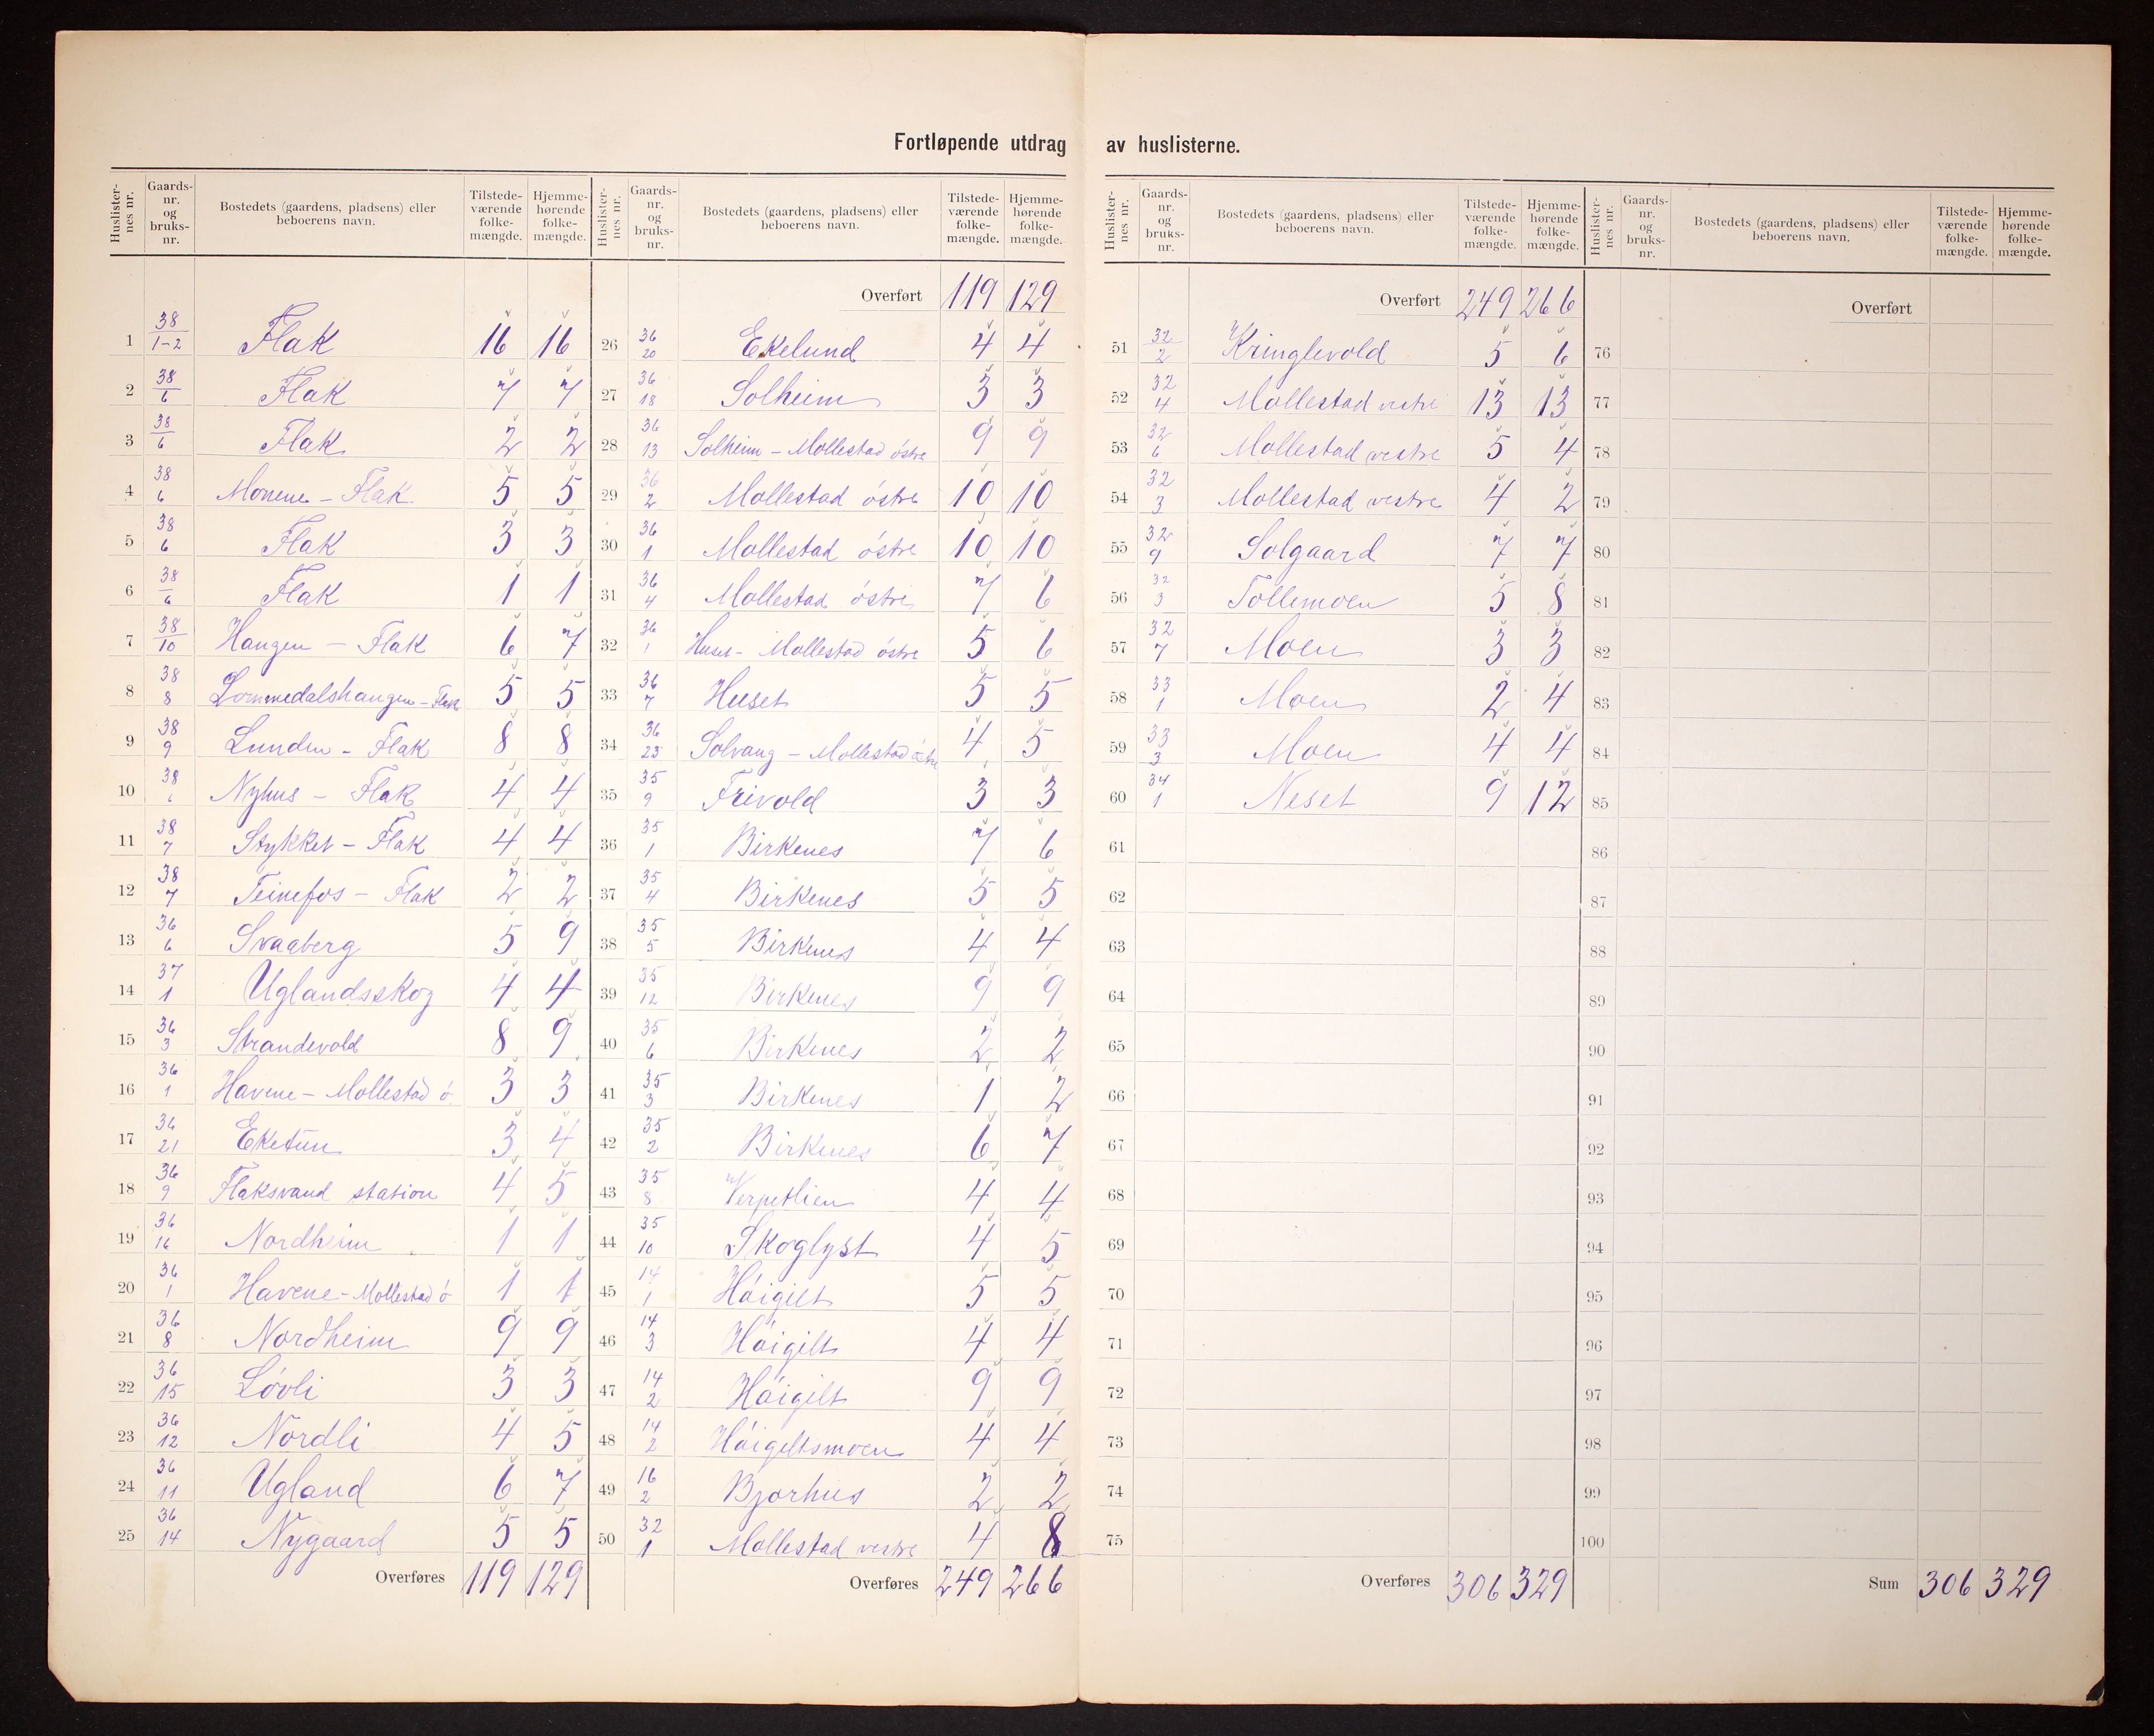 Fortløpende utdrag av huslisterne.
Huslisternes nr. Gaards-nr. og bruks-nr. Bostedets (gaardens, pladsens) eller beboerens navn. Tilstede-værende folke-mængde. Hjemme-hørende folke-mængde.
1 38/1-2 Flak 16 16
2 38/6 Flak 7 7
3 38/6 Flak 2 2
4 38/6 Monene - Flak 5 5
5 38/6 Flak 3 3
6 38/6 Flak 1 1
7 38/10 Haugen - Flak 6 7
8 38/8 Lommedalshaugen - Flak 5 5
9 38/9 Lunden - Flak 8 8
10 38/6 Nyhus - Flak 4 4
11 38/7 Stykket - Flak 4 4
12 38/7 Teinefos - Flak 2 2
13 36/6 Svaaberg 5 9
14 37/1 Uglandsskog 4 4
15 36/3 Strandevold 8 9
16 36/1 Havene - Mollestad ö. 3 3
17 36/21 Eketun 3 4
18 36/9 Flaksvand station 4 5
19 36/16 Nordheim 1 1
20 36/1 Havene - Mollestad ö 1 1
21 36/8 Nordheim 9 9
22 36/15 Lövli 3 3
23 36/12 Nordli 4 5
24 36/11 Ugland 6 7
25 36/14 Nygaard 5 5
Overføres 119 129
Huslisternes nr. Gaards-nr. og bruks-nr. Bostedets (gaardens, pladsens) eller beboerens navn. Tilstede-værende folke-mængde. Hjemme-hørende folke-mængde.
Overført 119 129
26 36/20 Ekelund 4 4
27 36/18 Solheim 3 3
28 36/13 Solheim - Mollestad östre 9 9
29 36/2 Mollestad östre 10 10
30 36/1 Mollestad östre 10 10
31 36/4 Mollestad östre 7 6
32 36/1 Huset - Mollestad östre 5 6
33 36/7 Huset 5 5
34 36/23 Solvang - Mollestad östre 4 5
35 35/9 Frivold 3 3
36 35/1 Birkenes 7 6
37 35/4 Birkenes 5 5
38 35/5 Birkenes 4 4
39 35/12 Birkenes 9 9
40 35/6 Birkenes 2 2
41 35/3 Birkenes 1 2
42 35/2 Birkenes 6 7
43 35/8 Verpetlien 4 4
44 35/10 Skoglyst 4 5
45 14/1 Höigilt 5 5
46 14/3 Höigilt 4 4
47 14/2 Höigilt 9 9
48 14/2 Höigiltsmoen 4 4
49 16/2 Bjorhus 2 2
50 32/1 Mollestad vestre 4 8
Overføres 249 266
Huslisternes nr. Gaards-nr. og bruks-nr. Bostedets (gaardens, pladsens) eller beboerens navn. Tilstede-værende folke-mængde. Hjemme-hørende folke-mængde.
Overført 249 266
51 32/2 Kringlevold 5 6
52 32/4 Mollestad vestre 13 13
53 32/6 Mollestad vestre 5 4
54 32/3 Mollestad vestre 4 2
55 32/9 Solgaard 7 7
56 32/3 Tollemoen 5 8
57 32/7 Moen 3 3
58 33/1 Moen 2 4
59 33/3 Moen 4 4
60 34/1 Neset 9 12
61
62
63
64
65
66
67
68
69
70
71
72
73
74
75
Overføres 306 329
Huslisternes nr. Gaards-nr. og bruks-nr. Bostedets (gaardens, pladsens) eller beboerens navn. Tilstede-værende folke-mængde. Hjemme-hørende folke-mængde.
Overført
76
77
78
79
80
81
82
83
84
85
86
87
88
89
90
91
92
93
94
95
96
97
98
99
100
Sum 306 329